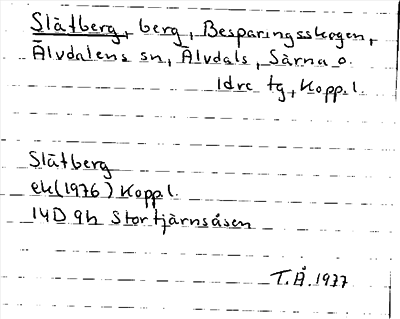 Slätberg, berg, Besparingsskogen,
Älvdalens sn, Älvdals, Särna o.
Idre tg, Koppl.
Slätberg
ek (1976) Koppl.
14D 9h Stortjärnsåsen
T.Å. 1977